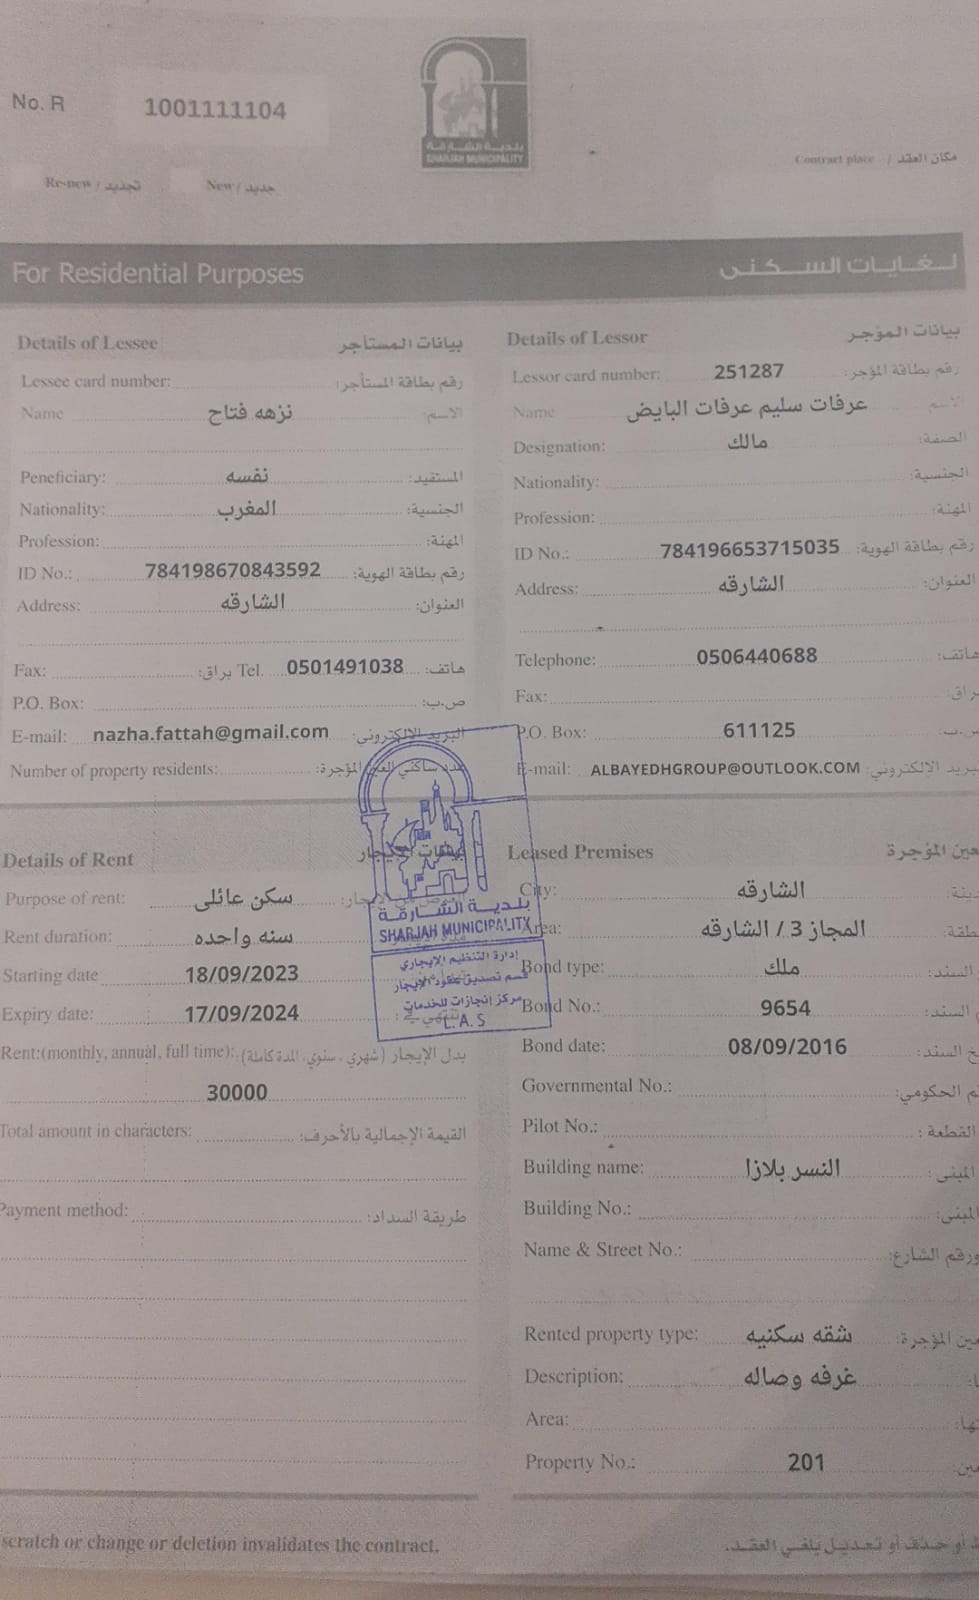 No. R 1001111104
بلدية الشارقة
SHARJAH MUNICIPALITY
Contract place / مكان العقد
Re-new / تجديد New / جديد
For Residential Purposes لغايات السكنى
Details of Lessee بيانات المستأجر
Lessee card number: رقم بطاقة المستأجر:
Name نزهه فتاح الاسم:
Peneficiary: نفسه المستفيد:
Nationality: المغرب الجنسية:
Profession: المهنة:
ID No.: 784198670843592 رقم بطاقة الهوية:
Address: الشارقه العنوان:
Fax: براق: Tel. 0501491038 هاتف:
P.O. Box: ص.ب:
E-mail: nazha.fattah@gmail.com البريد الالكتروني:
Number of property residents: عدد ساكني العين المؤجرة:
Details of Lessor بيانات المؤجر
Lessor card number: 251287 رقم بطاقة المؤجر:
Name عرفات سليم عرفات البايض الاسم
Designation: مالك الصفة:
Nationality: الجنسية:
Profession: المهنة:
ID No.: 784196653715035 رقم بطاقة الهوية:
Address: الشارقه العنوان:
Telephone: 0506440688 هاتف:
Fax: براق:
P.O. Box: 611125
E-mail: ALBAYEDHGROUP@OUTLOOK.COM البريد الالكتروني:
Details of Rent بيانات الإيجار
Purpose of rent: سكن عائلى
Rent duration: سنه واحده
Starting date 18/09/2023
Expiry date: 17/09/2024
Rent:(monthly, annual, full time): بدل الإيجار (شهري، سنوي، المدة كاملة):
30000
Total amount in characters: القيمة الإجمالية بالأحرف:
Payment method: طريقة السداد:
بلدية الشارقة
SHARJAH MUNICIPALITY
إدارة التنظيم الإيجاري
قسم تصديق عقود الإيجار
مركز إنجازات للخدمات
L.A.S
Leased Premises عين المؤجرة
City: الشارقه
Area: المجاز 3 / الشارقه
Bond type: ملك السند:
Bond No.: 9654 السند:
Bond date: 08/09/2016 خ السند:
Governmental No.: م الحكومي:
Pilot No.: القطعة:
Building name: النسر بلازا المبنى:
Building No.: المبنى:
Name & Street No.: ورقم الشارع:
Rented property type: شقه سكنيه عين المؤجرة:
Description: غرفه وصاله
Area:
Property No.: 201
scratch or change or deletion invalidates the contract. أو حذف أو تعديل يلغي العقد.